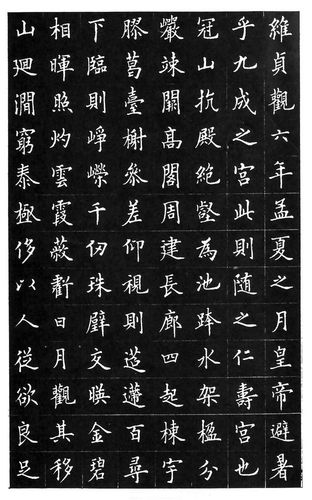 維貞觀六年孟夏之月皇帝避暑
乎九成之宮此則随之仁壽宮也
冠山抗殿絶壑為池跨水架楹分
巖竦闕高閣周建長廊四起棟宇
膠葛臺榭參差仰視則迢遰百尋
下臨則崢嶸千仞珠璧交暎金碧
相暉照灼雲霞蔽虧日月觀其移
山廻澗窮泰極侈以人從欲良足